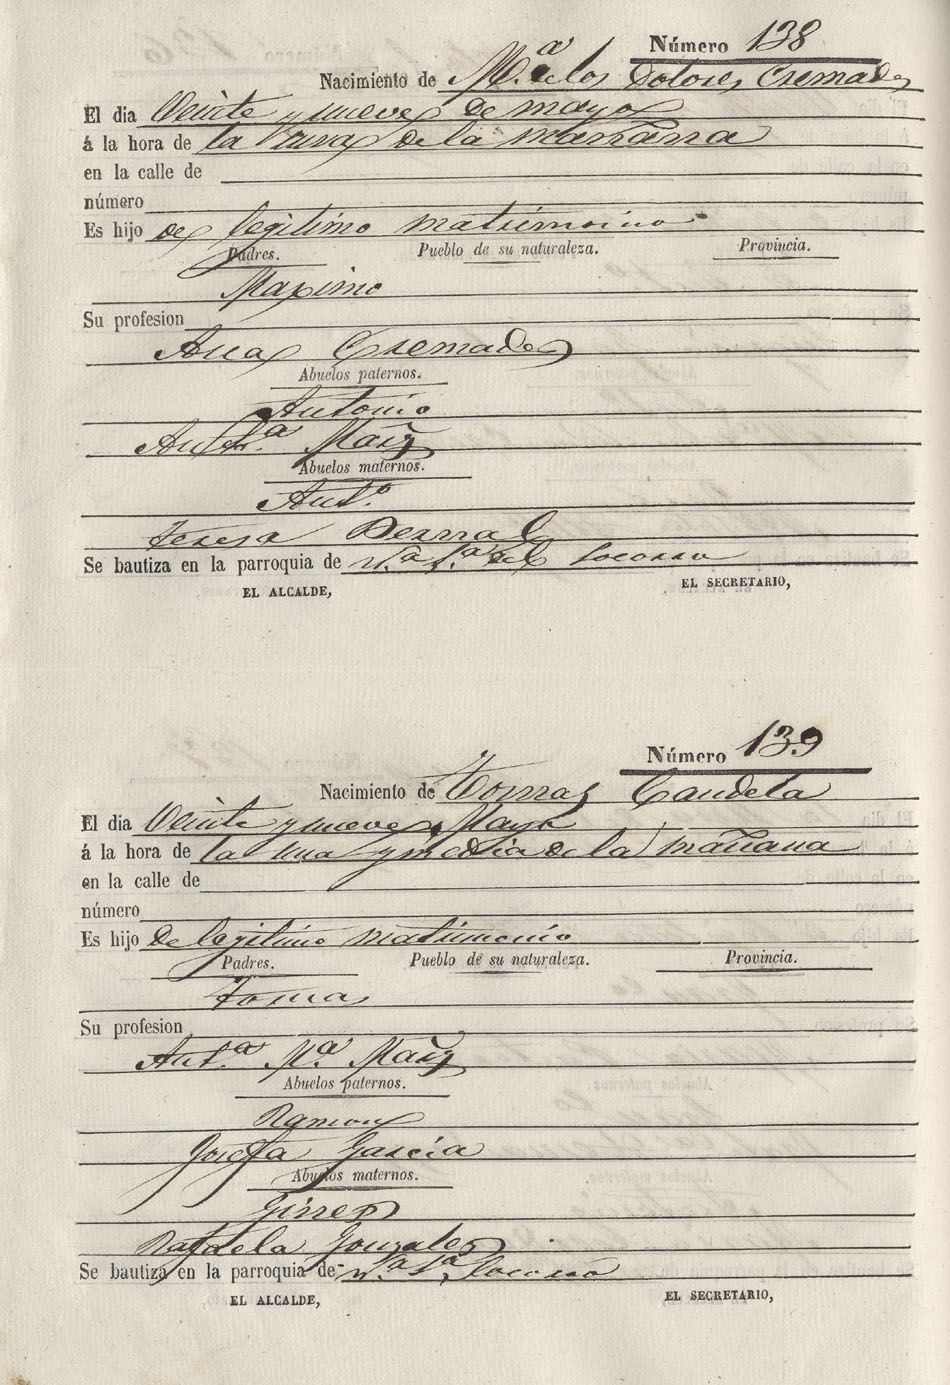 Número 138
Nacimiento de M.ª de los Dolores Cremades
El dia Veinte y nueve de mayo
á la hora de la una de la mañana
en la calle de
número
Es hijo de legitimo matrimonio
Padres. Pueblo de su naturaleza. Provincia.
Maximo
Su profesion
Ana Cremades
Abuelos paternos.
Antonio
Ant.ª Maiz
Abuelos maternos.
Ant.º
Teresa Bernal
Se bautiza en la parroquia de N.ª S.ª del Socorro
EL ALCALDE, EL SECRETARIO,
Número 139
Nacimiento de Tomas Candela
El dia Veinte y nueve Mayo
á la hora de la una y media de la mañana
en la calle de
número
Es hijo de legitimo matrimonio
Padres. Pueblo de su naturaleza. Provincia.
Tomas
Su profesion
Ant.ª M.ª Maiz
Abuelos paternos.
Ramon
Josefa Garcia
Abuelos maternos.
Gines
Rafaela Gonzales
Se bautiza en la parroquia de N.ª S.ª Socorro
EL ALCALDE, EL SECRETARIO,